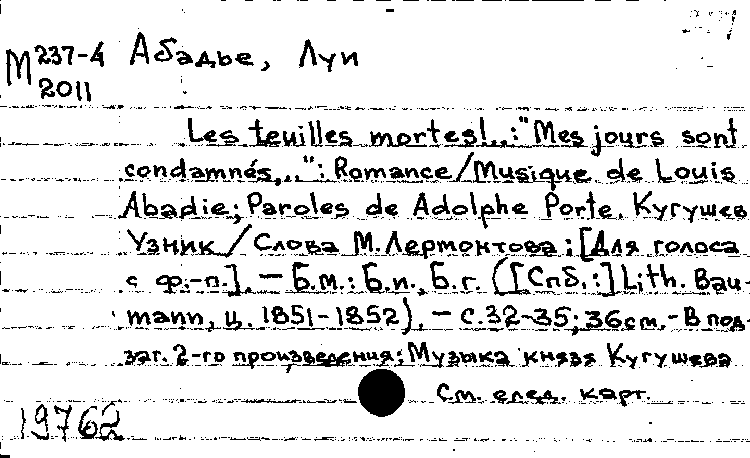 М 237-4 Абадье, Луи
2011
Les feuilles mortes!..: "Mes jours sont
condamnés,..": Romance/Musique de Louis
Abadie; Paroles de Adolphe Porte. Кугушев
Узник / Слова М.Лермонтова; [Для голоса
с ф.-п.]. — Б.м.: Б.и., Б.г. ([Спб.:] Lith. Bau-
mann, ц. 1851-1852). — С.32-35; 36см.- В под-
заг. 2-го произведения: Музыка князя Кугушева
См. след. карт.
19762